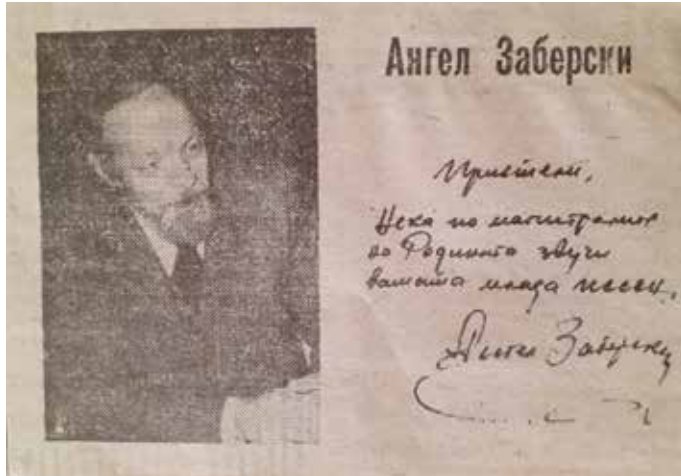 Ангел Заберски
Приятели,
Нека по магистралите
на Родината звучи
вашата млада песен.
Ангел Заберски